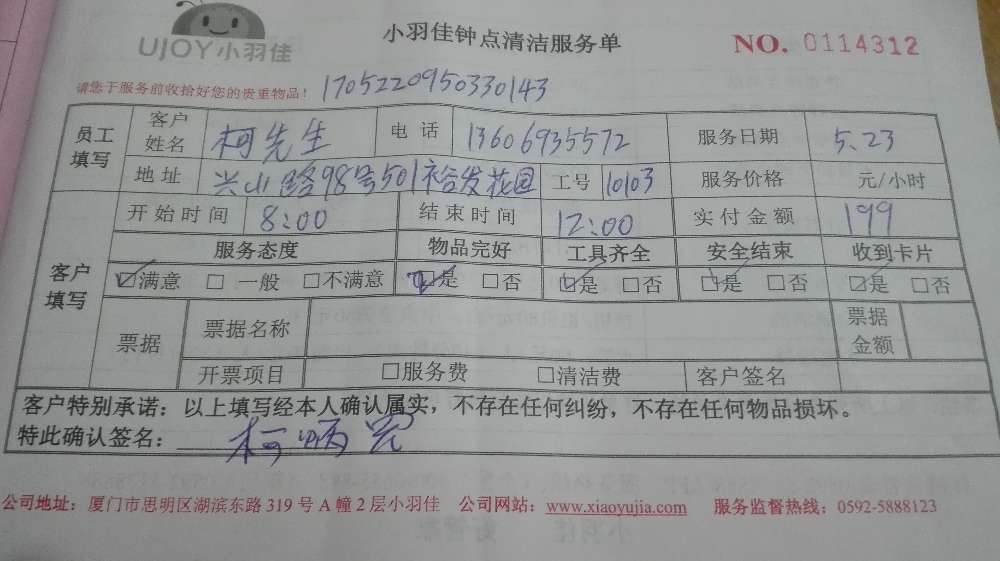 UJOY小羽佳
小羽佳钟点清洁服务单
NO. 0114312
请您于服务前收拾好您的贵重物品！
1705220950330143
员工填写 客户姓名 柯先生 电话 13606935572 服务日期 5.23
地址 兴山路98号501裕发花园 工号 10103 服务价格 元/小时
客户填写 开始时间 8:00 结束时间 12:00 实付金额 199
服务态度 物品完好 工具齐全 安全结束 收到卡片
☑满意 □一般 □不满意 ☑是 □否 ☑是 □否 ☑是 □否 ☑是 □否
票据 票据名称 票据金额
开票项目 □服务费 □清洁费 客户签名
客户特别承诺：以上填写经本人确认属实，不存在任何纠纷，不存在任何物品损坏。
特此确认签名： 柯炳
公司地址：厦门市思明区湖滨东路319号A幢2层小羽佳 公司网站：www.xiaoyujia.com 服务监督热线：0592-5888123